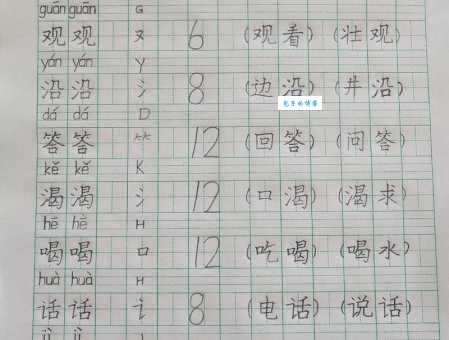 guān guān G
观 观 又 6 (观 看) (壮 观)
yán yán Y
沿 沿 氵 8 (边 沿) (井 沿)
dá dá D
答 答 ⺮ 12 (回 答) (问 答)
kě kě K
渴 渴 氵 12 (口 渴) (渴 求)
hē hē H
喝 喝 口 12 (吃 喝) (喝 水)
huà huà H
话 话 讠 8 (电 话) (说 话)